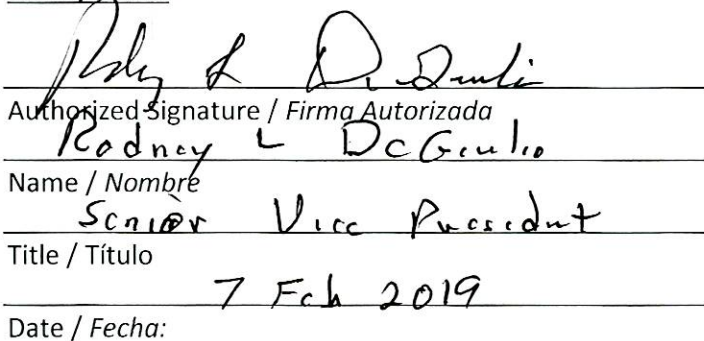 Rodney L DeGiulio
Authorized Signature / Firma Autorizada
Rodney L DeGiulio
Name / Nombre
Senior Vice President
Title / Título
7 Feb 2019
Date / Fecha: